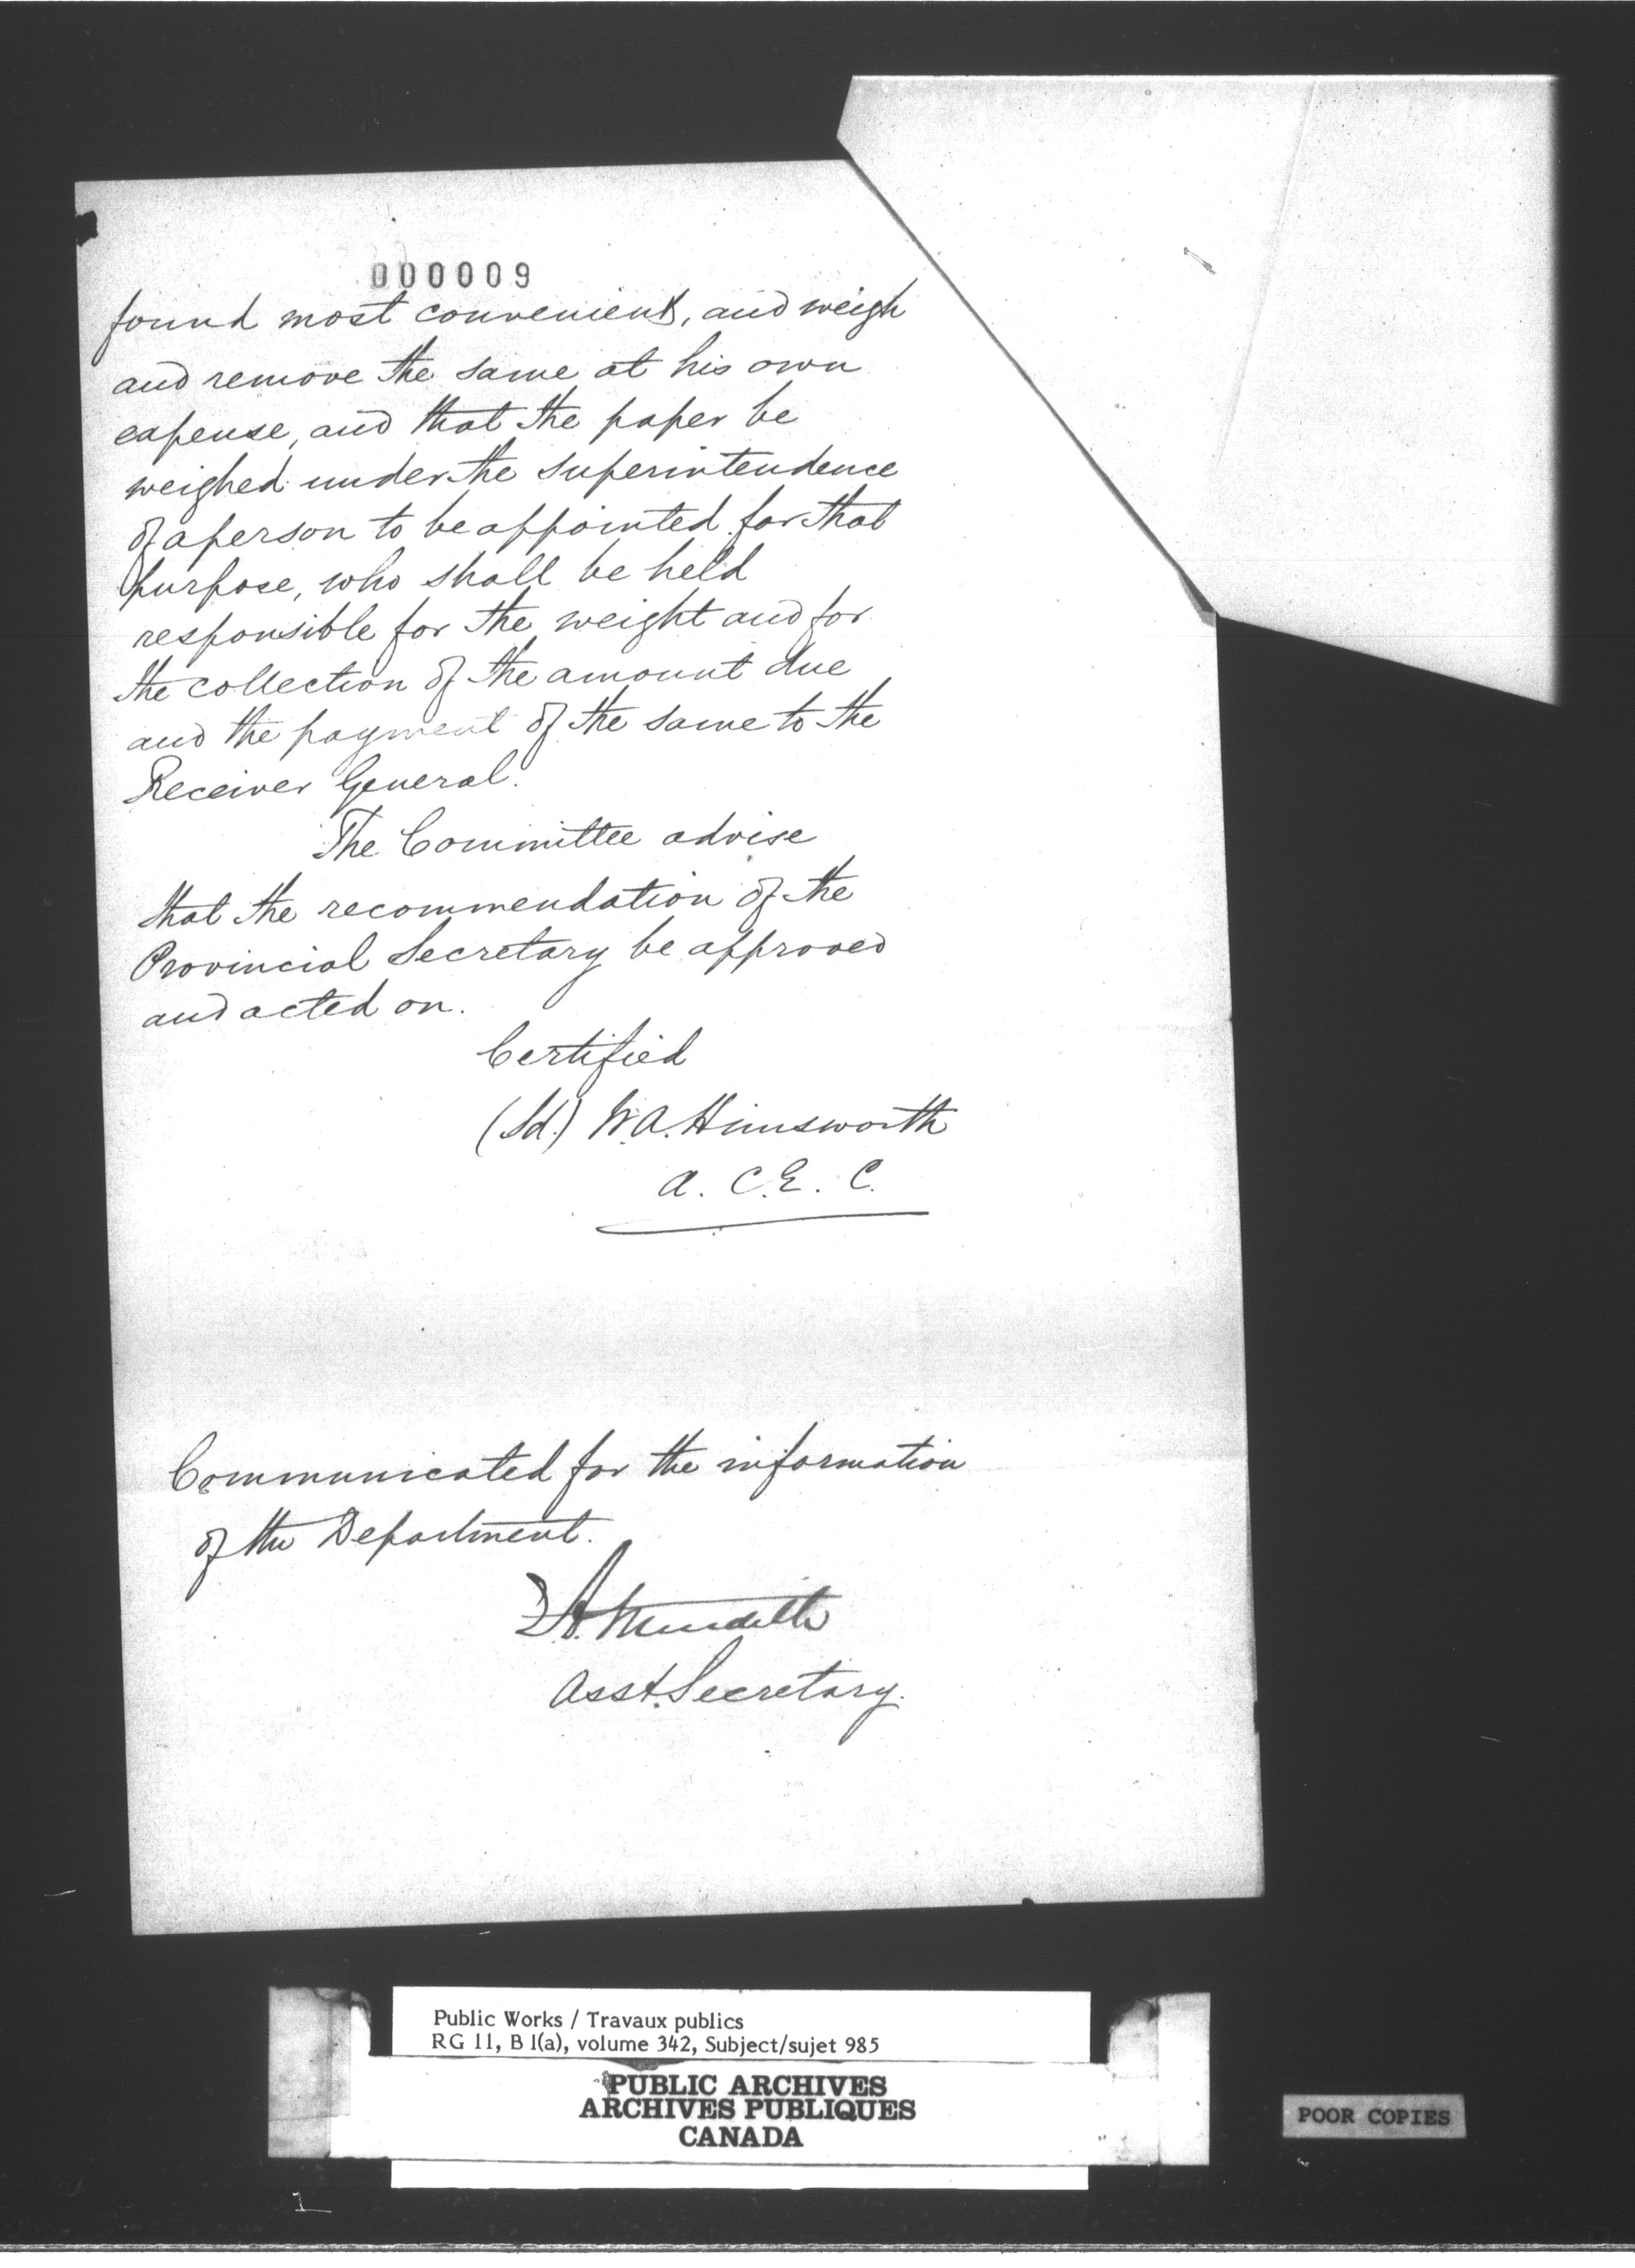 000009
found most convenient, and weigh
and remove the same at his own
expense, and that the paper be
weighed under the superintendence
of a person to be appointed for that
purpose, who shall be held
responsible for the weight and for
the collection of the amount due
and the payment of the same to the
Receiver General.
The Committee advise
that the recommendation of the
Provincial Secretary be approved
and acted on.
Certified
(Sd.) W.A. Himsworth
A. C.E. C.
Communicated for the information
of the Department.
E.A. Meredith
Asst. Secretary.
Public Works / Travaux publics
RG 11, B 1(a), volume 342, Subject/sujet 985
PUBLIC ARCHIVES
ARCHIVES PUBLIQUES
CANADA
POOR COPIES
1